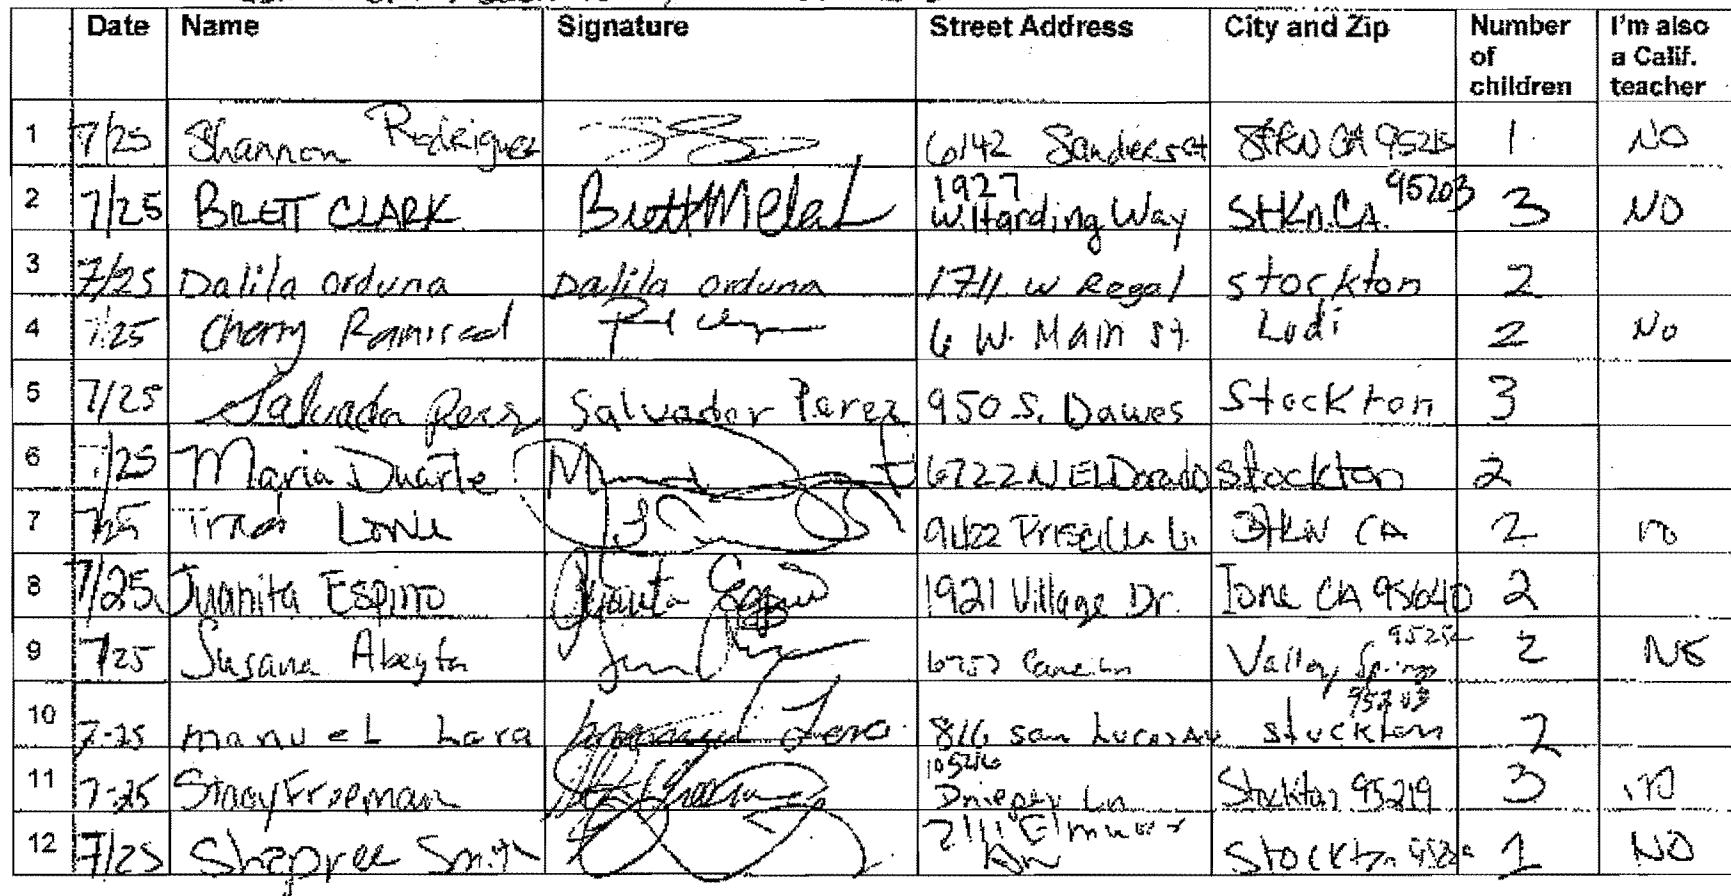 Date Name Signature Street Address City and Zip Number of children I'm also a Calif. teacher
1 7/25 Shannon Rodriguez 6142 Sanders ct STKN CA 1 NO
2 7/25 BRETT CLARK 1927 W. Harding Way StKn. CA. 95203 3 NO
3 7/25 Dalila orduna Dalila orduna 1711 W Regal stockton 2
4 7/25 Cherry 6 W. Main St. Lodi 2 No
5 7/25 Salvador Perez Salvador Perez 950 S. Dawes Stockton 3
6 7/25 Maria Duarte 6722 N El Dorado stockton 2
7 7/25 Priscilla STKN CA 2 no
8 7/25 Juanita Espino Juanita Espino 1921 Village Dr. Ione CA 95640 2
9 7/25 Susana Abeyta Valley Springs 95252 2 NO
10 7-25 manuel Lara 816 san Lucas Av stockton 95203 2
11 7-25 Stacy Freeman Dnieper Ln Stockton 95219 3 no
12 7/25 Smith Stockton 1 NO